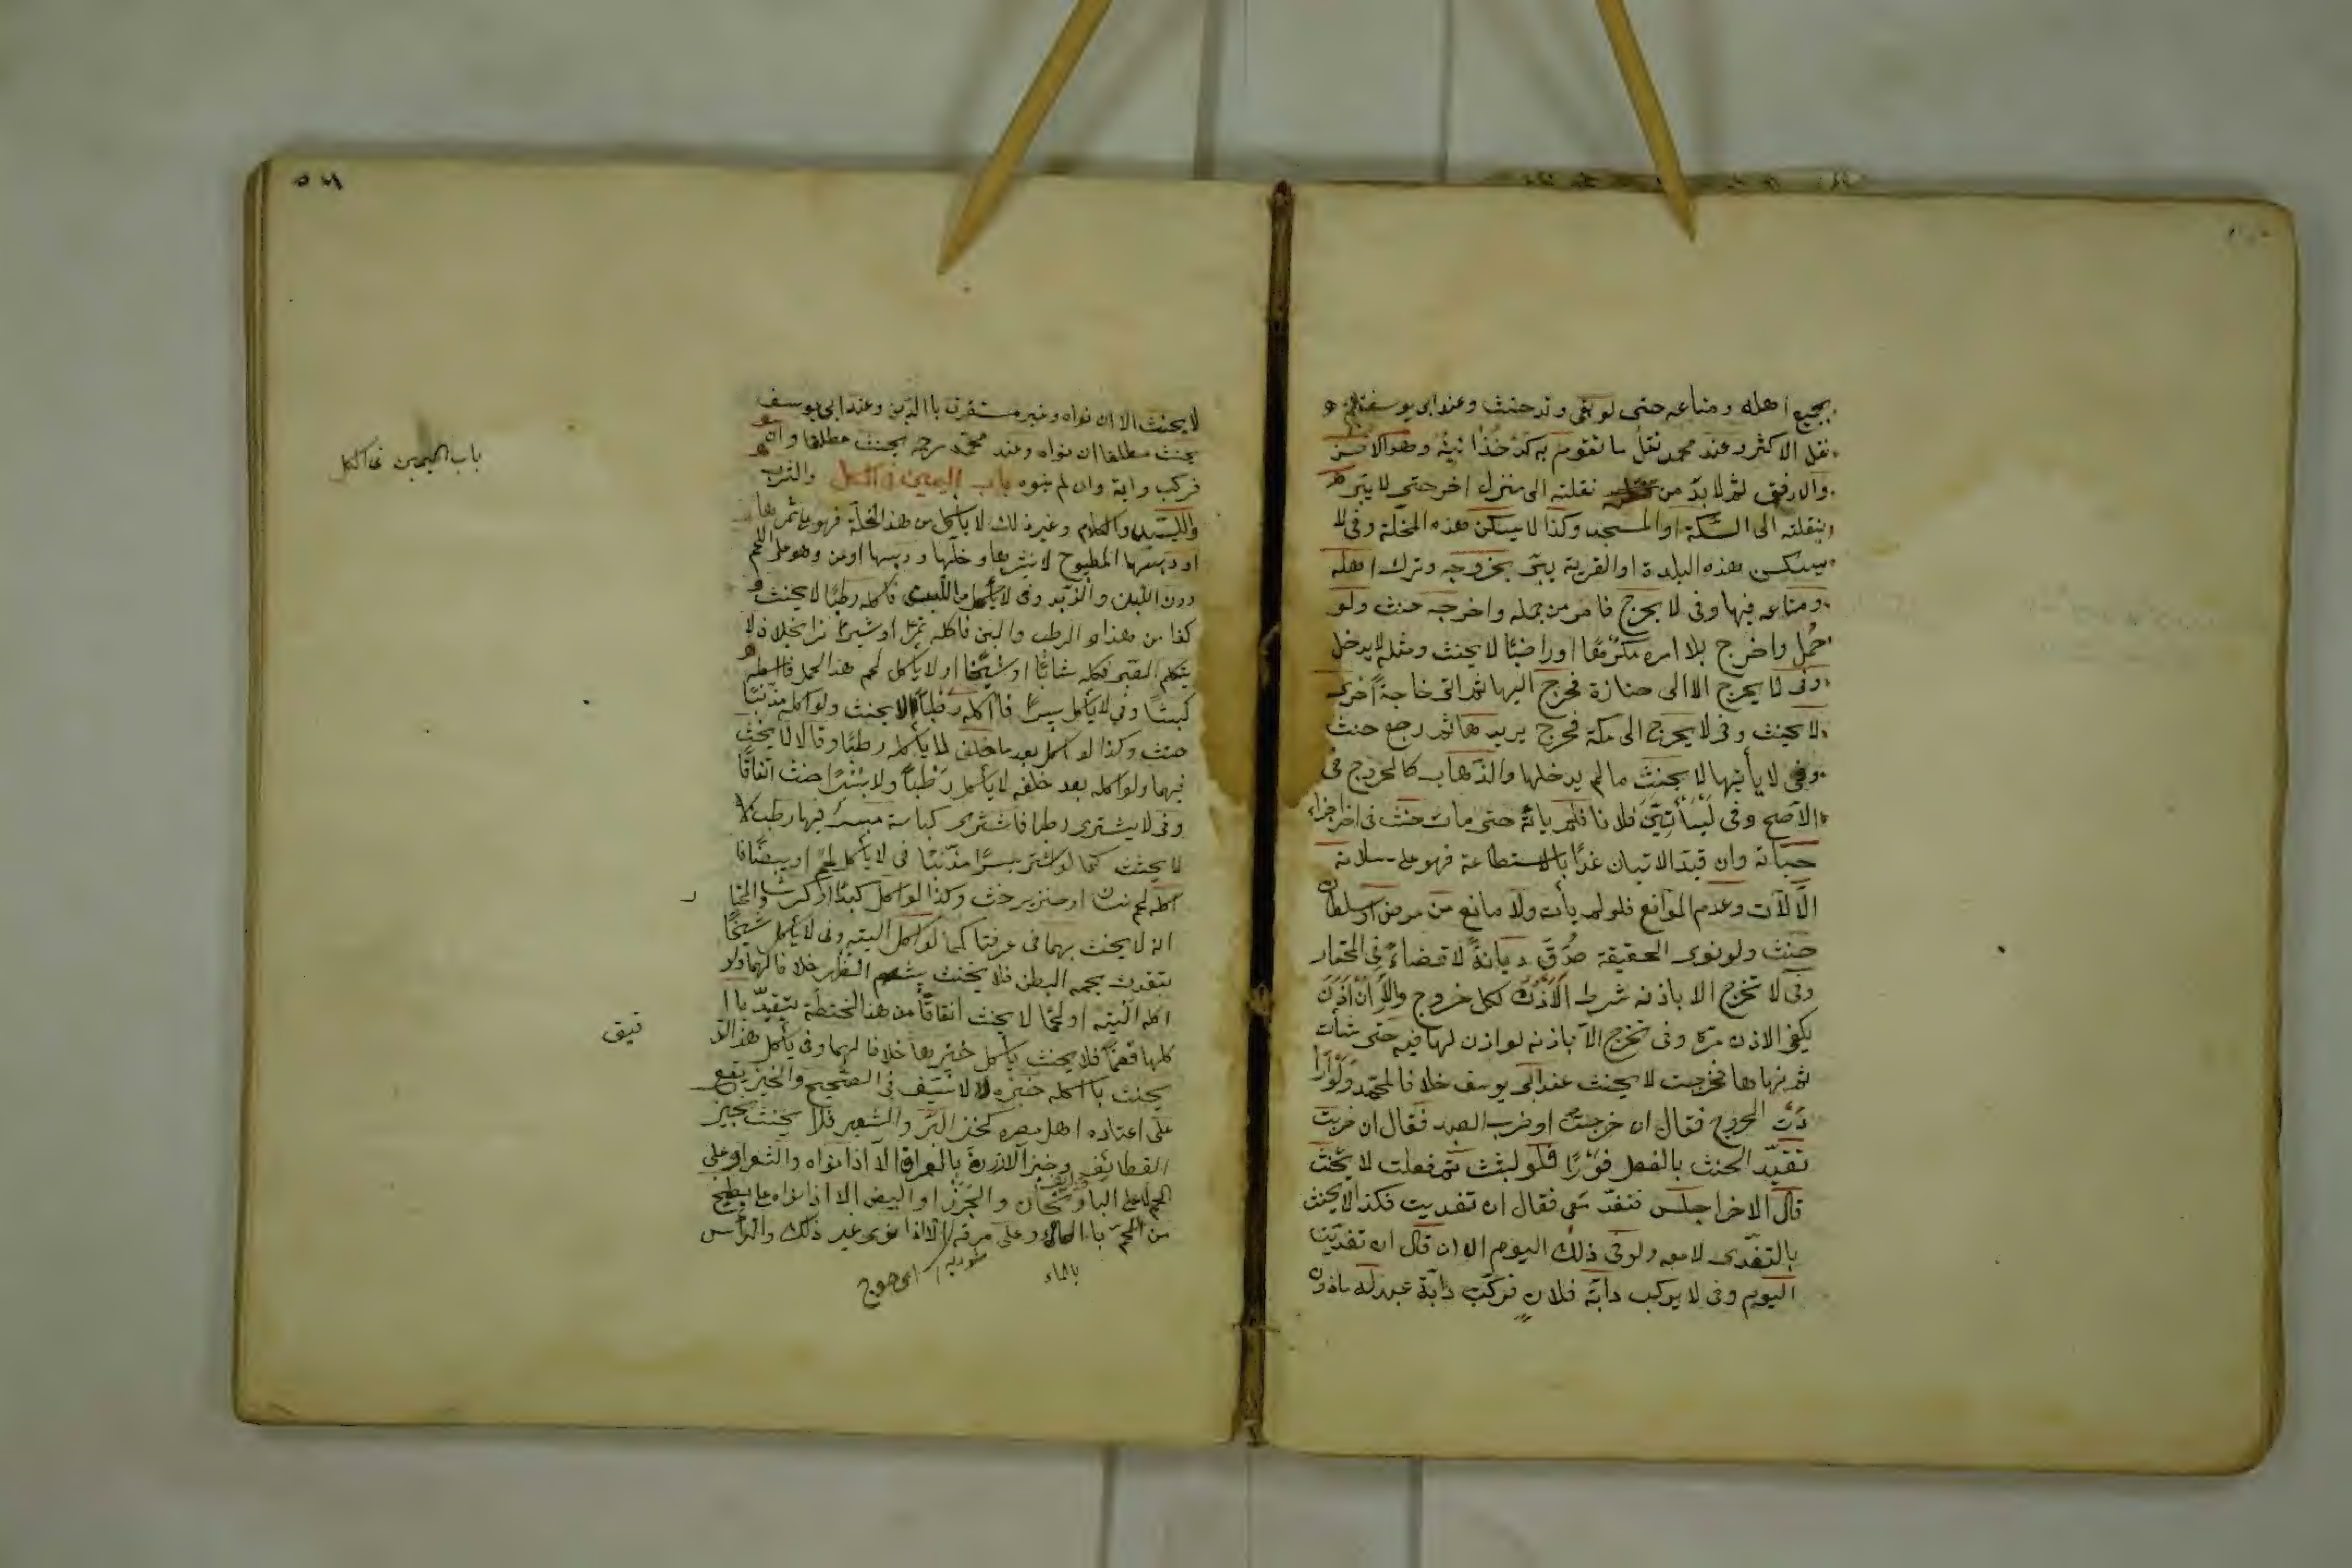 بجميع اهله ومتاعه حتى لو بقى وتد حنث وعند ابى يوسف
نقل الاكثر وعند محمد نقل ما تقوم به كدخذائيته وهو الاحسن
والارفق ثم لا بدّ من نقلته الى منزل اخر حتى لا يبرّ
بنقلته الى السّكة او المسجد وكذا لا يسكن هذه المحلّة وفى لا
يسكن هذه البلدة او القرية يبرّ بخروجه وترك اهله
ومتاعه فيها وفى لا يخرج فامر من حمله واخرجه حنث ولو
حُمل واخرج بلا امره مكرهًا او راضيًا لا يحنث ومثله لا يدخل
وفى لا يخرج الا الى جنازة فخرج اليها ثم اتى حاجةً اخرى
لا يحنث وفى لا يخرج الى مكة فخرج يريدها ثم رجع حنث
وفى لا يأتيها لا يحنث ما لم يدخلها والذّهاب كالخروج فى
الاصح وفى ليأتينّ فلانا فلم يأته حتى مات حنث فى اخر اجزاء
حياته وان قيّد الاتيان غدًا بالاستطاعة فهو على سلامة
الالات وعدم الموانع فلو لم يأت ولا مانع من مرض او سلطان
حنث ولو نوى الحقيقة صُدّق ديانةً لا قضاءً فى المختار
وفى لا تخرج الا باذنه شرط الاذن لكل خروج والا ان اذن
يكفى الاذن مرّة وفى تخرج الا باذنه لو اذن لها فيه حتى شأت
ثم نهاها فخرجت لا يحنث عند ابى يوسف خلافا لمحمّد ولو ارا
دت الخروج فقال ان خرجت او ضرب العبد فقال ان ضربت
تقيّد الحنث بالفعل فورًا فلو لبثت ثم فعلت لا يحنث
قال الاخر اجلس فتغدّ معى فقال ان تغديت فكذا لا يحنث
بالتغدّى لا معه ولو فى ذلك اليوم الا ان قال ان تغدّيت
اليوم وفى لا يركب دابّة فلان فركب دابّة عبد له ماذون
لا يحنث الا ان نواه وغير مستغرق باالدّين وعند ابى يوسف
يحنث مطلقا ان نواه وعند محمّد رحه يحنث مطلقا وان
فركب داية وان لم ينوه باب اليمين فى الاكل والشرب
واللّبس والكلام وغير ذلك لا يأكل من هذه النخلة فهو على ثمرها
ودبسها المطبوخ لا نبيذها وخلّها ودبسها او من وهو على اللحم
دون اللبن والزبد وفى لا يأكل من البسر فاكله رطبًا لا يحنث و
كذا من هذا الرطب واللبن فاكله تمرًا او شيرازا بخلاف لا
يتكلم الصّبى فكلّمه شابّا او شيخًا او لا يأكل لحم هذا الحمل فاكله
كبشًا وفى لا يأكل بسرًا فاكله رطبًا لا يحنث ولو اكله مذنّبًا
حنث وكذا لو اكل بعد ما حلف لا يأكل رطبًا وقالا لا يحنث
فيهما ولو اكله بعد حلفه لا يأكل رطبًا ولا بسرًا حنث اتفاقًا
وفى لا يشترى رطبا فاشترى كباسة بسر فيها رطب لا
لا يحنث كما لو اشترى بسرًا مذنّبًا فى لا يأكل لحمًا او بيضًا فا
كله لحم انسان او خنزير حنث وكذا لو اكل كبدًا او كرشا والمختا
انه لا يحنث بهما فى عرفنا كما لو اكل اليته وفى لا يأكل شحمًا
يتقيد بشحم البطن فلا يحنث بشحم الظهر خلافا لهما ولو
اكله اليته او لحمًا لا يحنث اتفاقًا من هذه الحنطة يتقيّد با
كلها قضمًا فلا يحنث يأكل خبزها خلافا لهما وفى يأكل هذا الد
قيق
يحنث بااكله خبزه لا لا بسفّه فى الصّحيح والخبز يقع
على اعتاده اهل مصره كخبز البرّ والشعير فلا يحنث بخبز
القطائف وخبز الارز بالعراق الا اذا نواه والشواء على
اللحم لا على الباذنجان والجزر او البيض الا اذا نواه على يطبخ
من اللحم باالماء وعلى مرقه الا اذا نوى غير ذلك والرأس
بالماء
باب اليمين فى الاكل